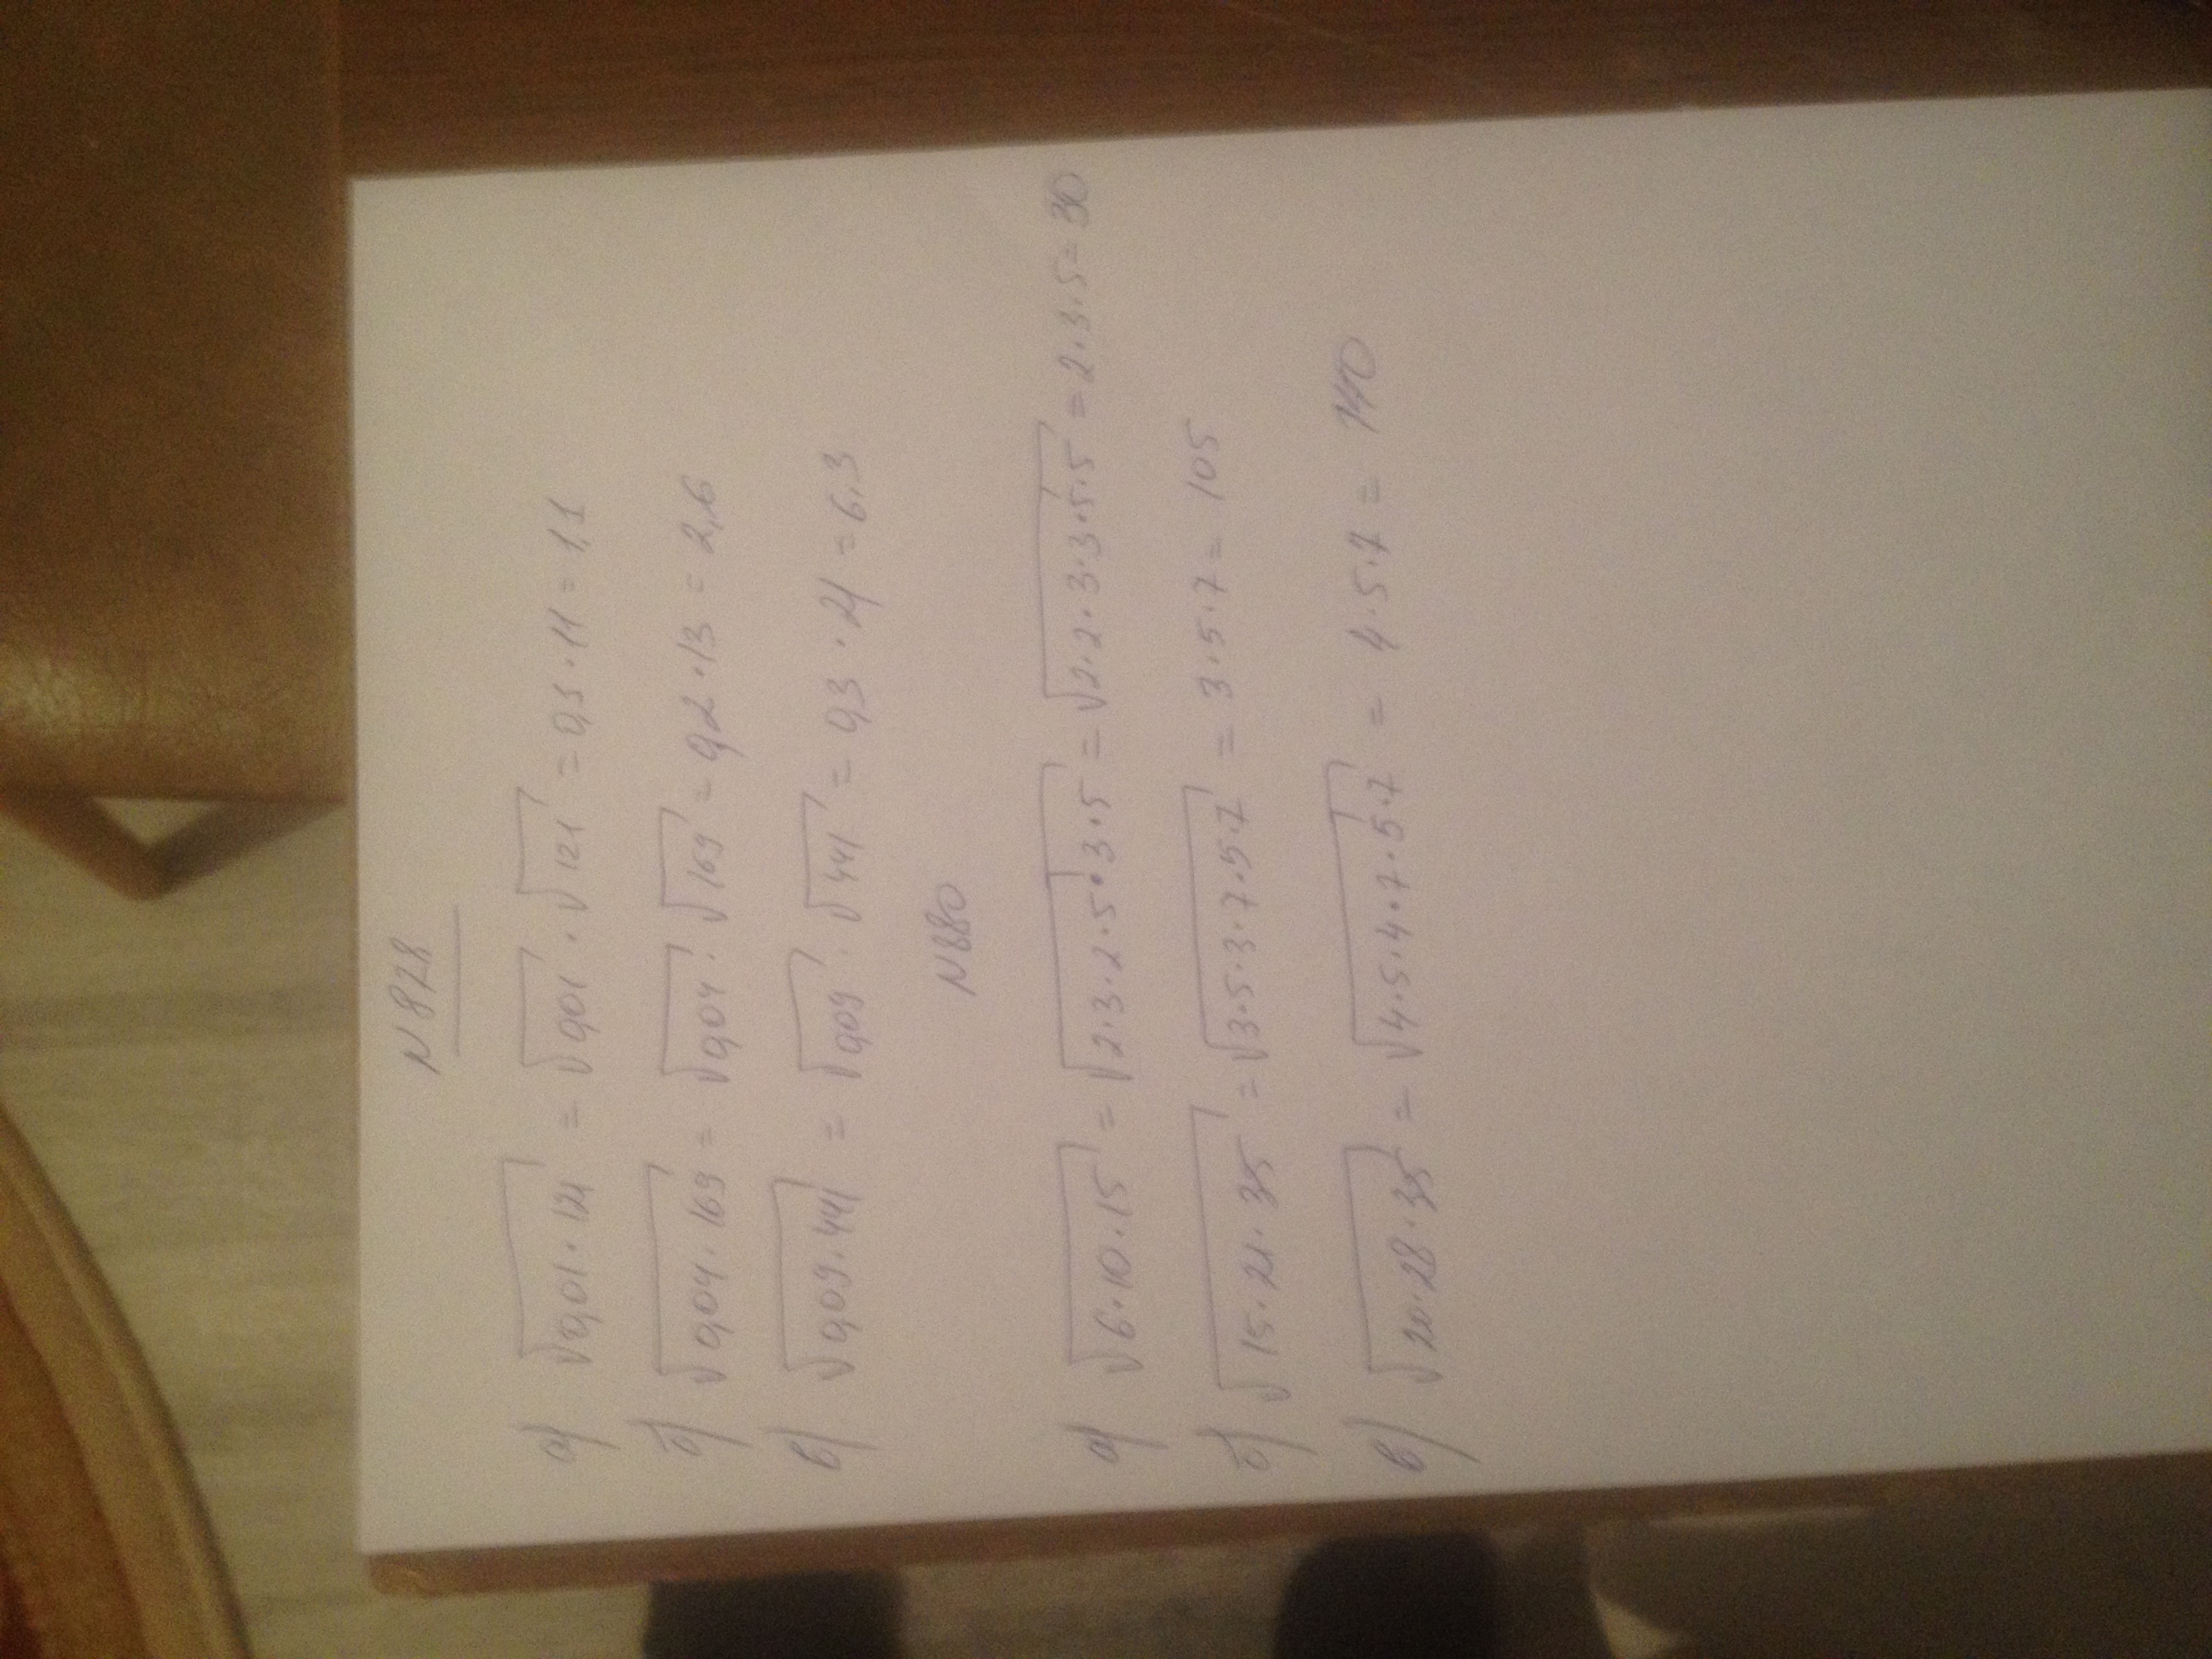 N 878
а) √0,01·121 = √0,01 · √121 = 0,1·11 = 1,1
б) √0,04·169 = √0,04 · √169 = 0,2·13 = 2,6
в) √0,09·441 = √0,09 · √441 = 0,3·21 = 6,3
N 880
а) √6·10·15 = √2·3·2·5·3·5 = √2·2·3·3·5·5 = 2·3·5 = 30
б) √15·21·35 = √3·5·3·7·5·7 = 3·5·7 = 105
в) √20·28·35 = √4·5·4·7·5·7 = 4·5·7 = 140